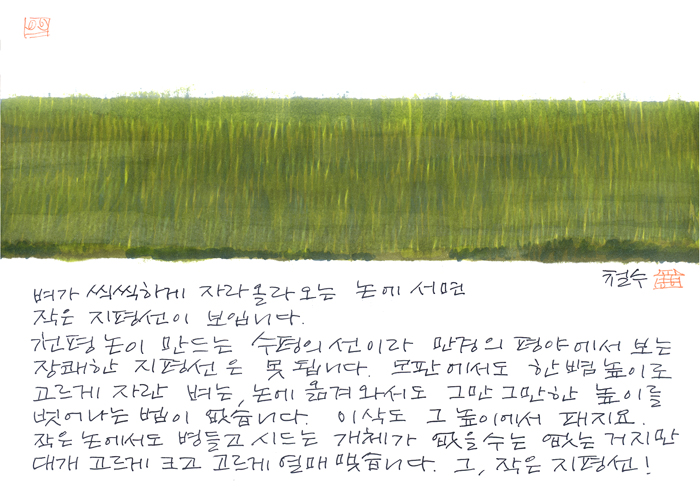 철수
벼가 씩씩하게 자라 올라오는 논에 서면
작은 지평선이 보입니다.
천평 논이 만드는 수평의 선이라 만경의 평야에서 보는
장쾌한 지평선은 못 됩니다. 모판에서도 한뼘 높이로
고르게 자란 벼는, 논에 옮겨와서도 그만그만한 높이를
벗어나는 법이 없습니다. 이삭도 그 높이에서 패지요.
작은 논에서도 병들고 시드는 개체가 없을 수는 없는 거지만
대개 고르게 크고 고르게 열매 맺습니다. 그, 작은 지평선!